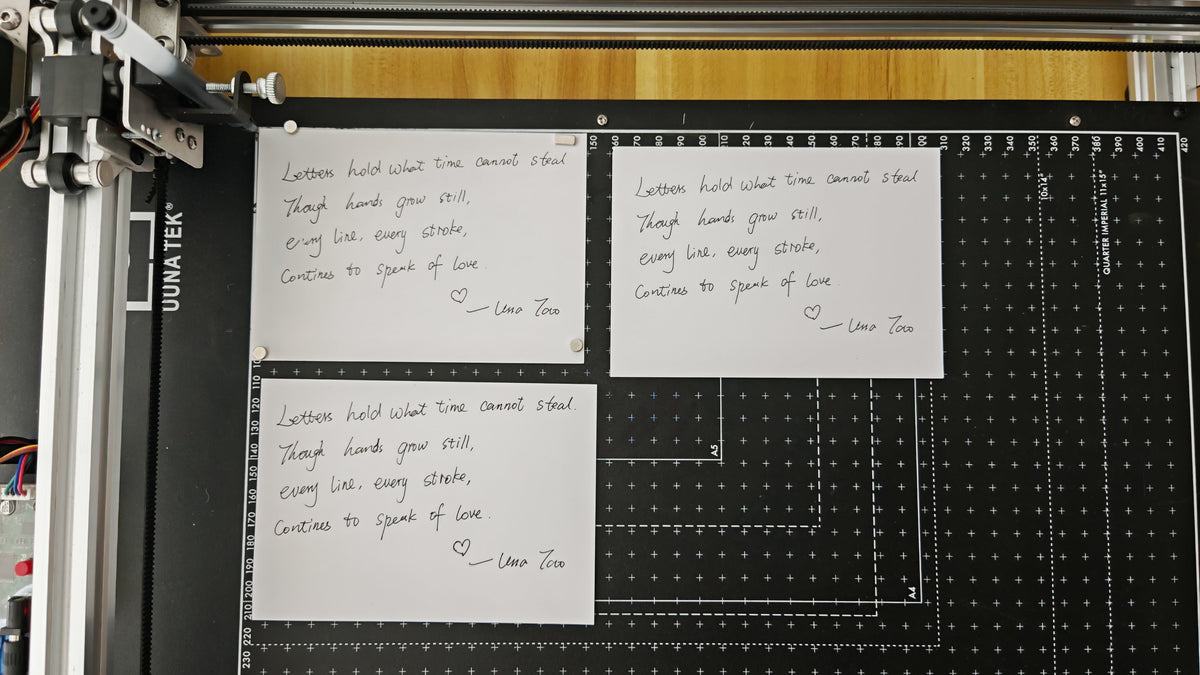 Letters hold what time cannot steal
Though hands grow still,
every line, every stroke,
Contines to speak of love.
♡ — Lena Zoro
Letters hold what time cannot steal
Though hands grow still,
every line, every stroke,
Contines to speak of love.
♡ — Lena Zoro
Letters hold what time cannot steal.
Though hands grow still,
every line, every stroke,
Contines to speak of love.
♡ — Lena Zoro
UUNA TEK®
150 160 170 180 190 200 210 220 230
110 120 130 140 150 160 170 180 190 200 210 220 230
310 320 330 340 350 360 370 380 390 400 410 420
10x14"
QUARTER IMPERIAL 11x15"
A5
A4